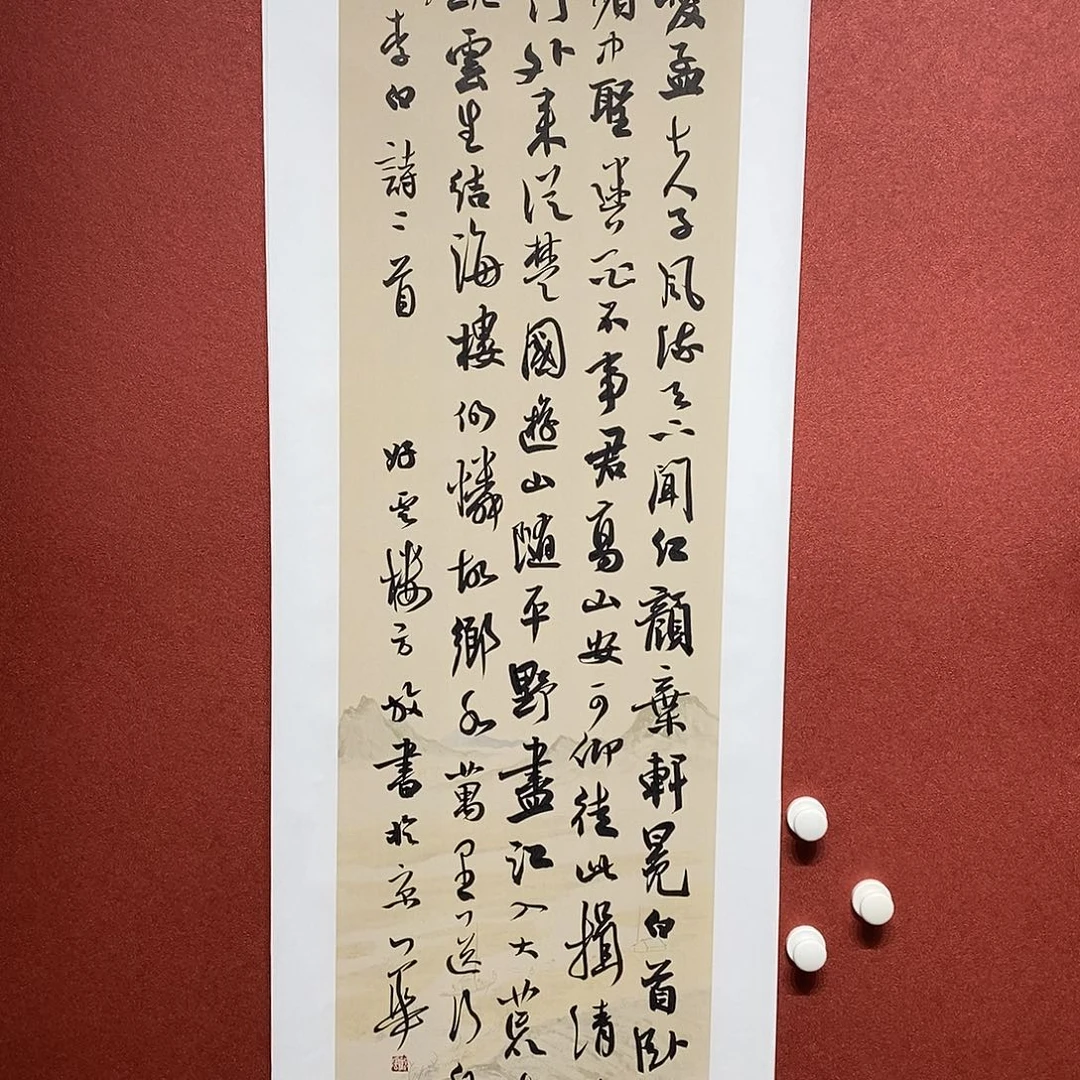 愛孟夫子風流天下聞紅顏棄軒冕白首卧
中聖迷花不事君高山安可仰徒此揖清
門外來從楚國遊山隨平野盡江入大荒
雲生結海樓仍憐故鄉水萬里送行舟
李白詩二首 好雲樓方放書於京華